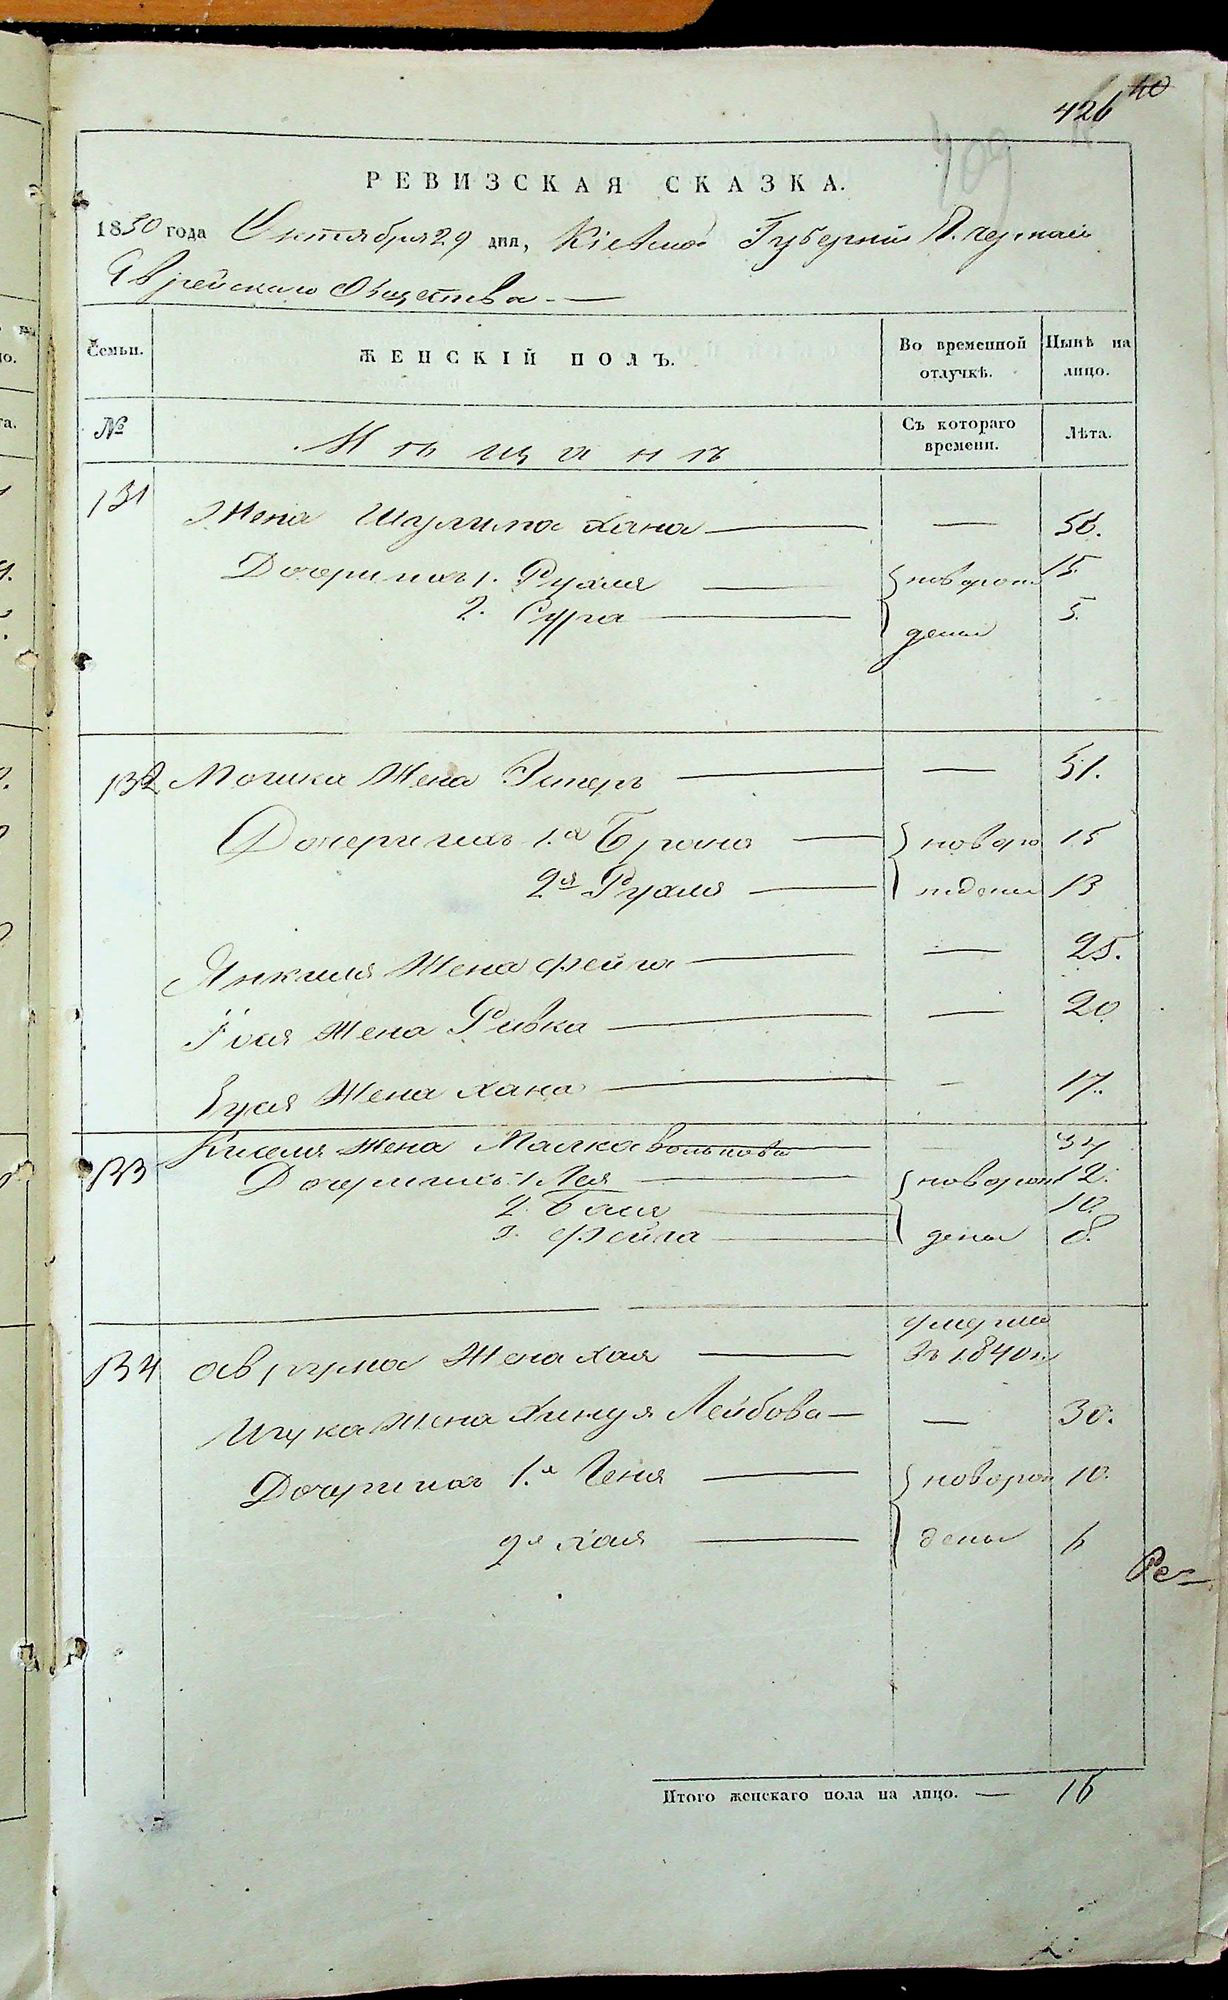 426 40
409
РЕВИЗСКАЯ СКАЗКА.
1850 года Октября 29 дня, Кіевской Губерніи
Еврейскаго Общества
Семьи. ЖЕНСКІЙ ПОЛЪ. Во временной отлучкѣ. Нынѣ на лицо.
№ Мѣщанѣ Съ котораго времени. Лѣта.
131 Жена Шулима Хана — — 56.
Дочери ихъ 1. Рухля — новорож 15.
2. Сура — дены 5.
132 Мошка Жена — — 51.
Дочери ихъ 1.я Брана — новоро 15
2я Рухля — ждены 13
Янкеля Жена Фейга — — 25.
Жена Ривка — — 20.
Жена Хана — — 17.
133 Киселя Жена Малка Волькова — 34
Дочери ихъ 1 Лея — новорож 12.
2. Бася — 10.
3. Фейга — дены 8.
134 Аврума Жена Хая — умерла
въ 1840 г.
Ицка Жена Хинуля Лейбова — — 30.
Дочери ихъ 1.я Геня — новорож 10.
2я Хая — дены 6
Ре-
Итого женскаго пола на лицо. — 16